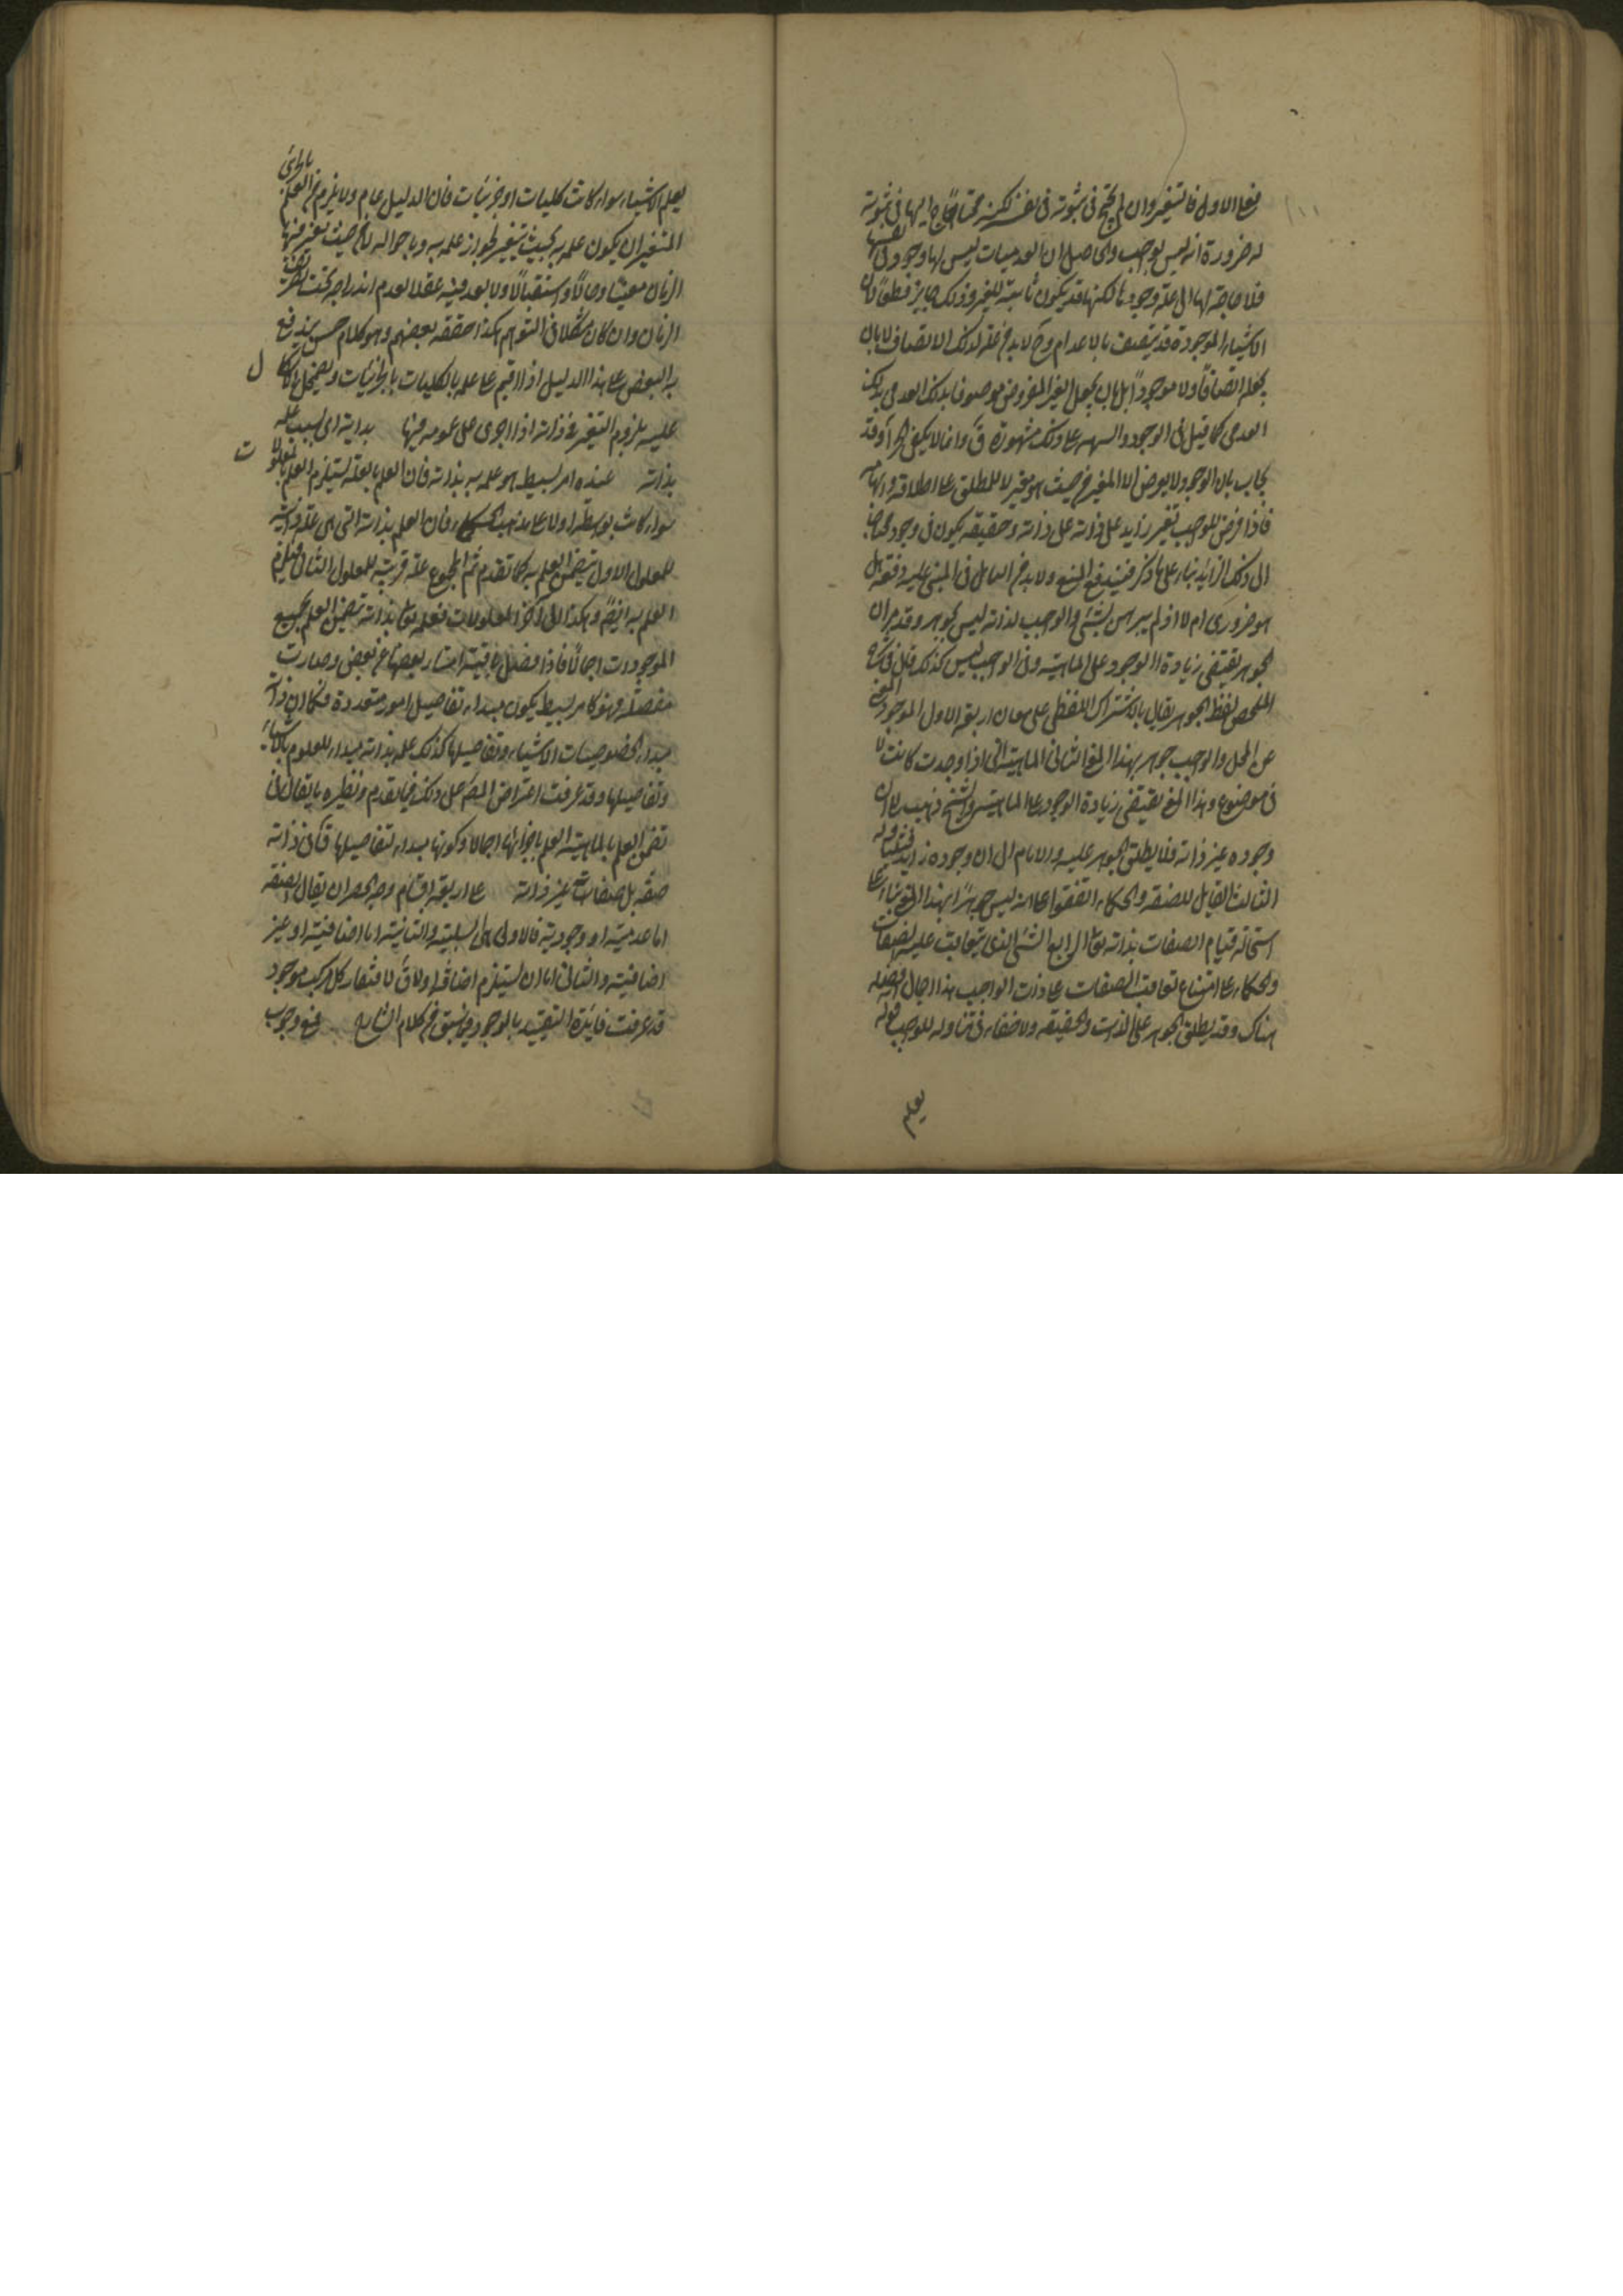 فعلى الاول فالتغير وان لم يحتج فى ثبوته فى نفسه لكنه محتاج اليها فى ثبوته
له ضرورة انه ليس بواجب والحاصل ان العدميات ليس لها وجود فى نفسها
فلا حاجة لها الى علة وجودها لكنها قد يكون ثابتة للغير وذلك جايز قطعا لان
الاشياء الموجودة قد يتصف بالاعدام وح لا بد من علة لذلك الاتصاف لا بان
يجعله اتصافا ولا موجودا بل بان يجعل الغير المفروض موصوفا بذلك العدمى بذلك
العدمى كما قيل فى الوجود والسهه على ذلك مشهورة وقد
يجاب بان الوجود لا يعرض الا المغير من حيث هو مغير لا للمطلق على اطلاقه
فاذا فرض للواجب تغير زايد على ذاته وحقيقته يكون فى وجوده محتاجا
الى ذلك الزايد بناء على ما ذكر فيندفع المنع ولا بد من التامل فى المبنى عليه دفعه هل
هو ضرورى ام لا اذ لم يبرهن بشئ والواجب لذاته ليس بجوهر وقد مر ان
الجوهر يقتضى زيادة الوجود على الماهية وفى الواجب ليس كذلك قال فى شرح
الملخص لفظ الجوهر يقال بالاشتراك اللفظى على معان اربعة الاول الموجود الغنى
عن المحل والواجب جوهر بهذا المعنى الثانى الماهية التى اذا وجدت كانت لا
فى موضوع وهذا المعنى يقتضى زيادة الوجود على الماهية والشيخ ذهب الى ان
وجوده عين ذاته فلا يطلق الجوهر عليه والامام الى ان وجوده زايد فيتناوله
الثالث القابل للصفة والحكماء اتفقوا على انه ليس جوهرا بهذا المعنى بناء على
استحالة قيام الصفات بذاته تعالى الرابع الشئ الذى يتعاقب عليه الصفات
والحكماء على امتناع تعاقب الصفات على ذات الواجب هذا اجمال ما فصله
هناك وقد يطلق الجوهر على الذات والحقيقة ولا خفاء فى تناوله للواجب قوله
يعلم
يعلم الاشياء سواء كانت كليات او جزئيات فان الدليل عام ولا يلزم من العلم بالجزئى
المتغير ان يكون علمه به بحيث يتغير لجواز علمه به وباحواله لا من حيث تغير منها
الزمان معينا وحالا واستقبالا ولا بعد فيه عقلا لعدم اندراجه تحت تصرف
الزمان وان كان مشكلا فى التوهم هكذا حققه بعضهم وهو كلام حسن يندفع
به النقض على هذا الدليل اذا اقيم على علمه بالكليات بالجزئيات ويضمحل الاشكال
عليه بلزوم التغير فى ذاته اذا اجرى على عمومه فيها بذاته اى بسبب علمه
بذاته عنده امر بسيط هو علمه به بذاته فان العلم بالعلة يستلزم العلم بالمعلولات
سواء كانت بواسطة او لا على مذهب الحكماء فان العلم بذاته التى هى علة قريبة
للمعلول الاول يتضمن العلم به كما تقدم ثم المجموع علة قريبة للمعلول الثانى فيلزم
العلم به ايضا وهكذا الى آخر المعلولات فعلمه تعالى بذاته يتضمن العلم بجميع
الموجودات اجمالا فاذا فصل ما فيه امتاز بعضها عن بعض وصارت
مفصلة فهو كامر بسيط يكون مبداء تفاصيل امور متعددة فكما ان ذاته
مبداء لخصوصيات الاشياء وتفاصيلها كذلك علمه بذاته مبداء للعلوم بالاشياء
وتفاصيلها وقد عرفت اعتراض المصر على ذلك فيما تقدم ونظيره ما يقال فى
تضمن العلم بالماهية العلم باجزائها اجمالا وكونها مبداء لتفاصيلها قال فى ذاته
صفة بل صفات غير ذاته على اربعة اقسام وجه الحصر ان يقال الصفة
اما عدمية او وجودية فالاولى هى السلبية والثانية اما اضافية او غير
اضافية والثانى اما ان يستلزم اضافة او لا قال لافتقار كل مركب موجود
قد عرفت فايدة التقييد بالوجود فيما سبق من كلام الشارح فمنع وجوب